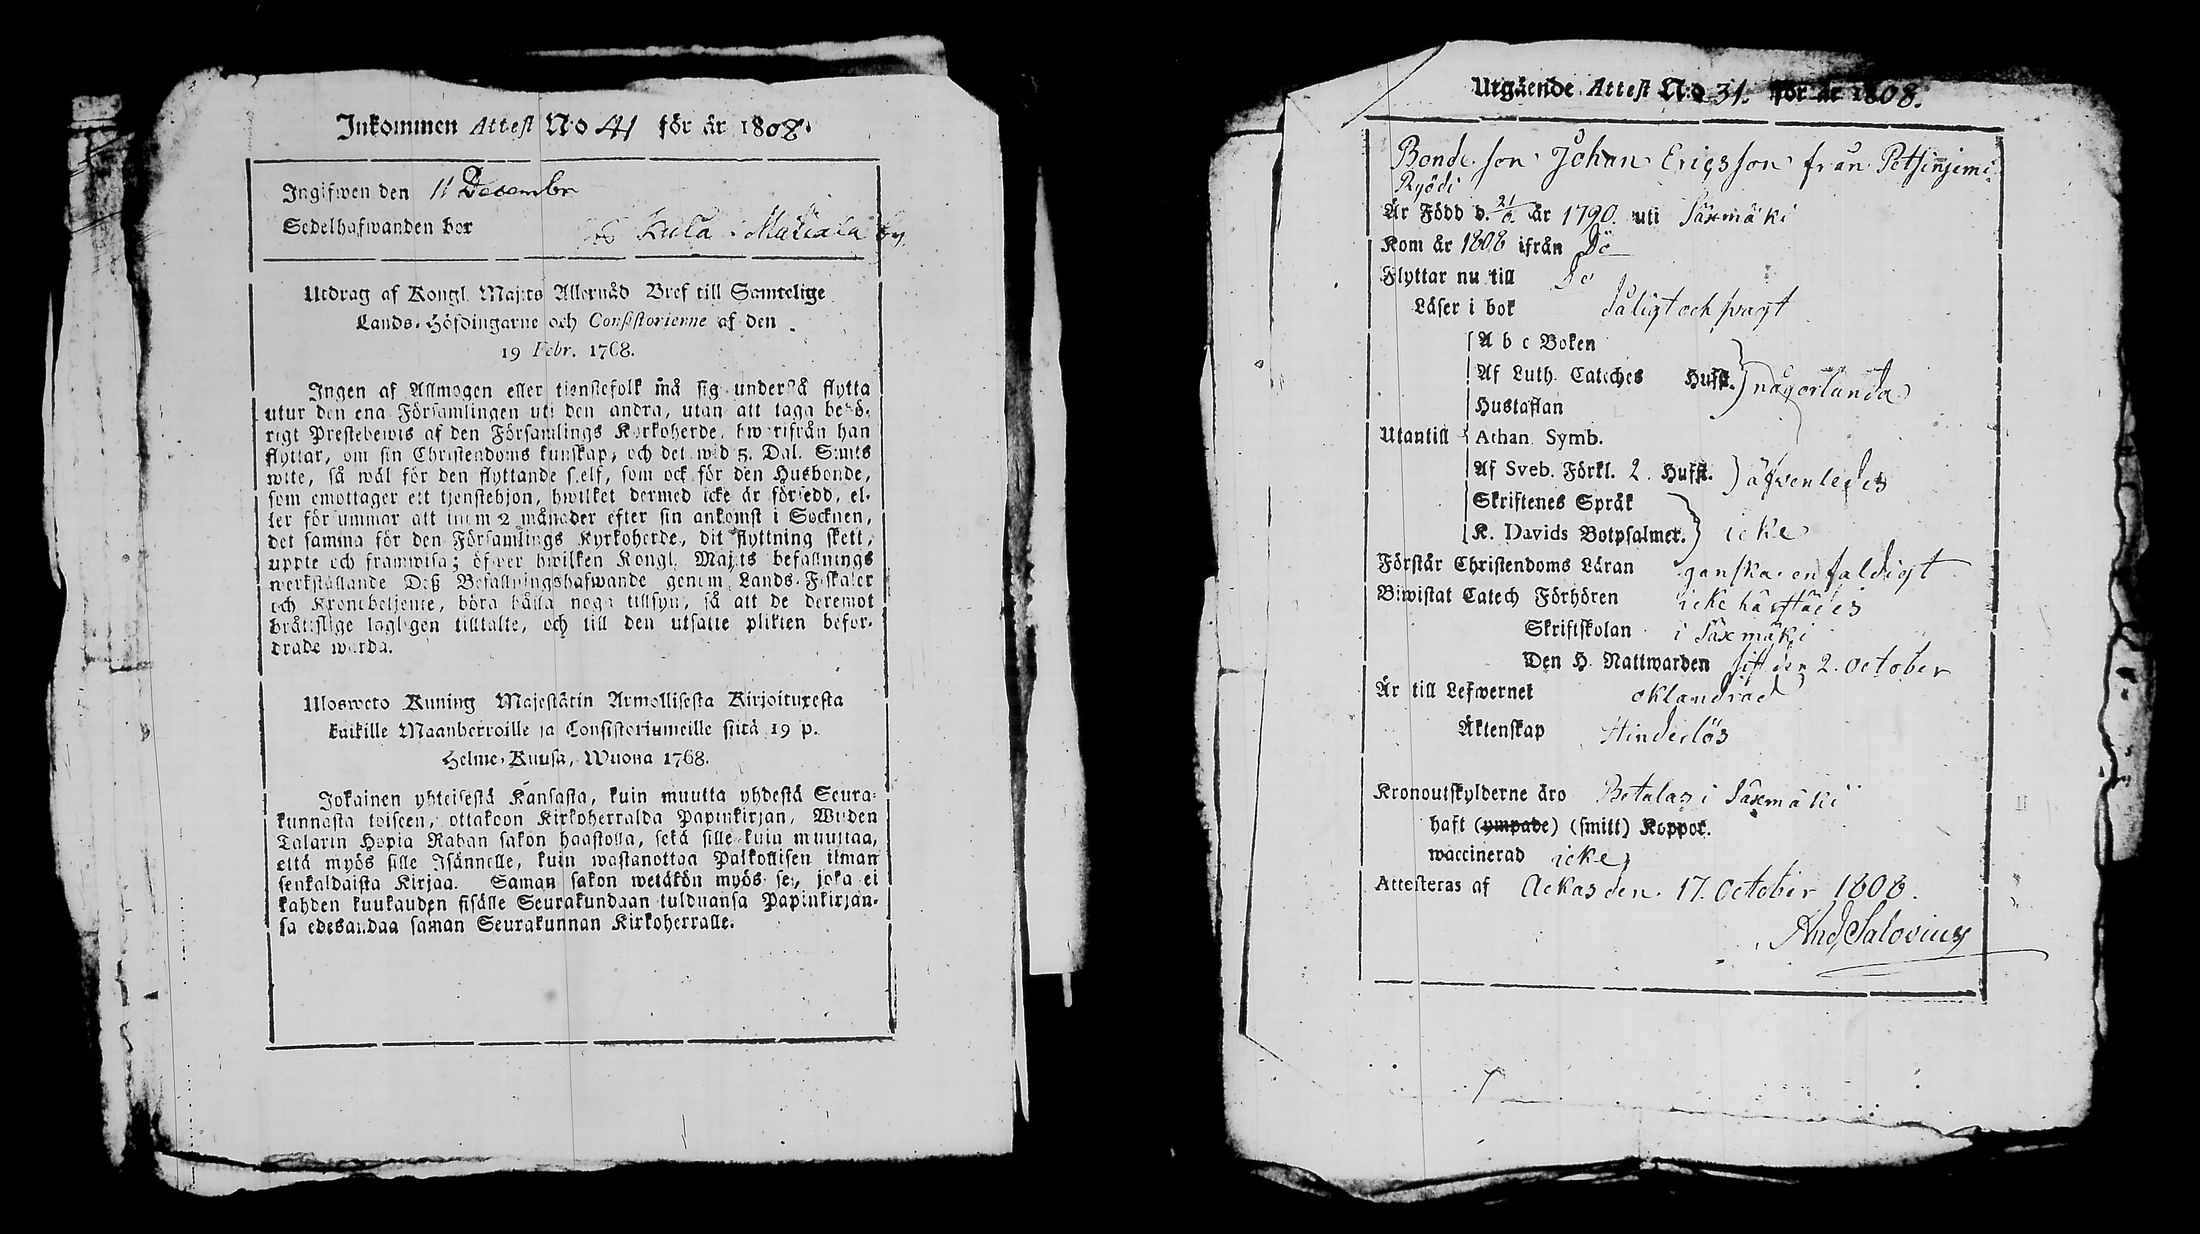 Inkommen Attest N:o 41 för år 1808.
Ingifwen den 11 Decembr
Sedelhafwanden bor
Utdrag af Kongl. Maj:ts Allernåd Bref till Samtelige
Lands-Höfdingarne och Consistorierne af den
19 Febr. 1768.
Ingen af Allmogen eller tienstefolk må sig understå flytta
utur den ena Församlingen uti den andra, utan att taga behö-
rigt Prestebewis af den Församlings Kyrkoherde, hwarifrån han
flyttar, om sin Christendoms kunskap, och det wid 5. Dal. S:mts
wite, så wäl för den flyttande sielf, som ock för den Husbonde,
som emottager ett tjenstehjon, hwilket dermed icke är försedd, el-
ler försummar att inom 2 månader efter sin ankomst i Socknen,
det samma för den Församlings Kyrkoherde, dit flyttning skett,
uppte och framwisa; öfwer hwilken Kongl. Maj:ts befallnings
werkställande Deß Befallningshafwande genom Lands-Fiskaler
och Kronobetjente, böra hålla noga tillsyn, så att de deremot
bråttslige lagligen tilltalte, och till den utsatte plikten befor-
drade warda.
Ulosweto Kuning Majestätin Armollisesta Kirjoituxesta
kaikille Maanherroille ja Consistoriumeille siitä 19 p.
Helme-Kuusa, Wuona 1768.
Jokainen yhteisestä Kansasta, kuin muutta yhdestä Seura-
kunnasta toiseen, ottakoon Kirkoherralda Papinkirjan, Wiiden
Talarin Hopia Rahan sakon haastolla, sekä sille kuin muuttaa,
että myös sille Isännelle, kuin wastanottaa Palkollisen ilman
senkaldaista Kirjaa. Saman sakon wetäkön myös se, joka ei
kahden kuukauden sisälle Seurakundaan tulduansa Papinkirjan-
sa edesandaa saman Seurakunnan Kirkoherralle.
Utgående Attest N:o 31. för år 1808.
Bonde son Johan Ericsson från
Är Född d. 21/6. år 1790. uti Säxmäki
Kom år 1808 ifrån Do
Flyttar nu till Do
Läser i bok dåligt och swagt
A b c Boken
Af Luth. Cateches Hufst. någorlunda
Hustaflan
Utantill Athan. Symb.
Af Sveb. Förkl. 2. Hufst. äfvenledes
Skriftenes Språk
K. Davids Botpsalmer. icke
Förstår Christendoms Läran ganska enfaldigt
Biwistat Catech Förhören icke härstädes
Skriftskolan i Säxmäki
Den H. Nattwarden sist den 2. October
Är till Lefwernet oklandrad
Äktenskap Hinderlös
Kronoutskylderne äro Betalas i Säxmäki
haft (ympade) (smitt) Koppor.
waccinerad icke
Attesteras af Ackas den 17. October 1808.
And. Salovius